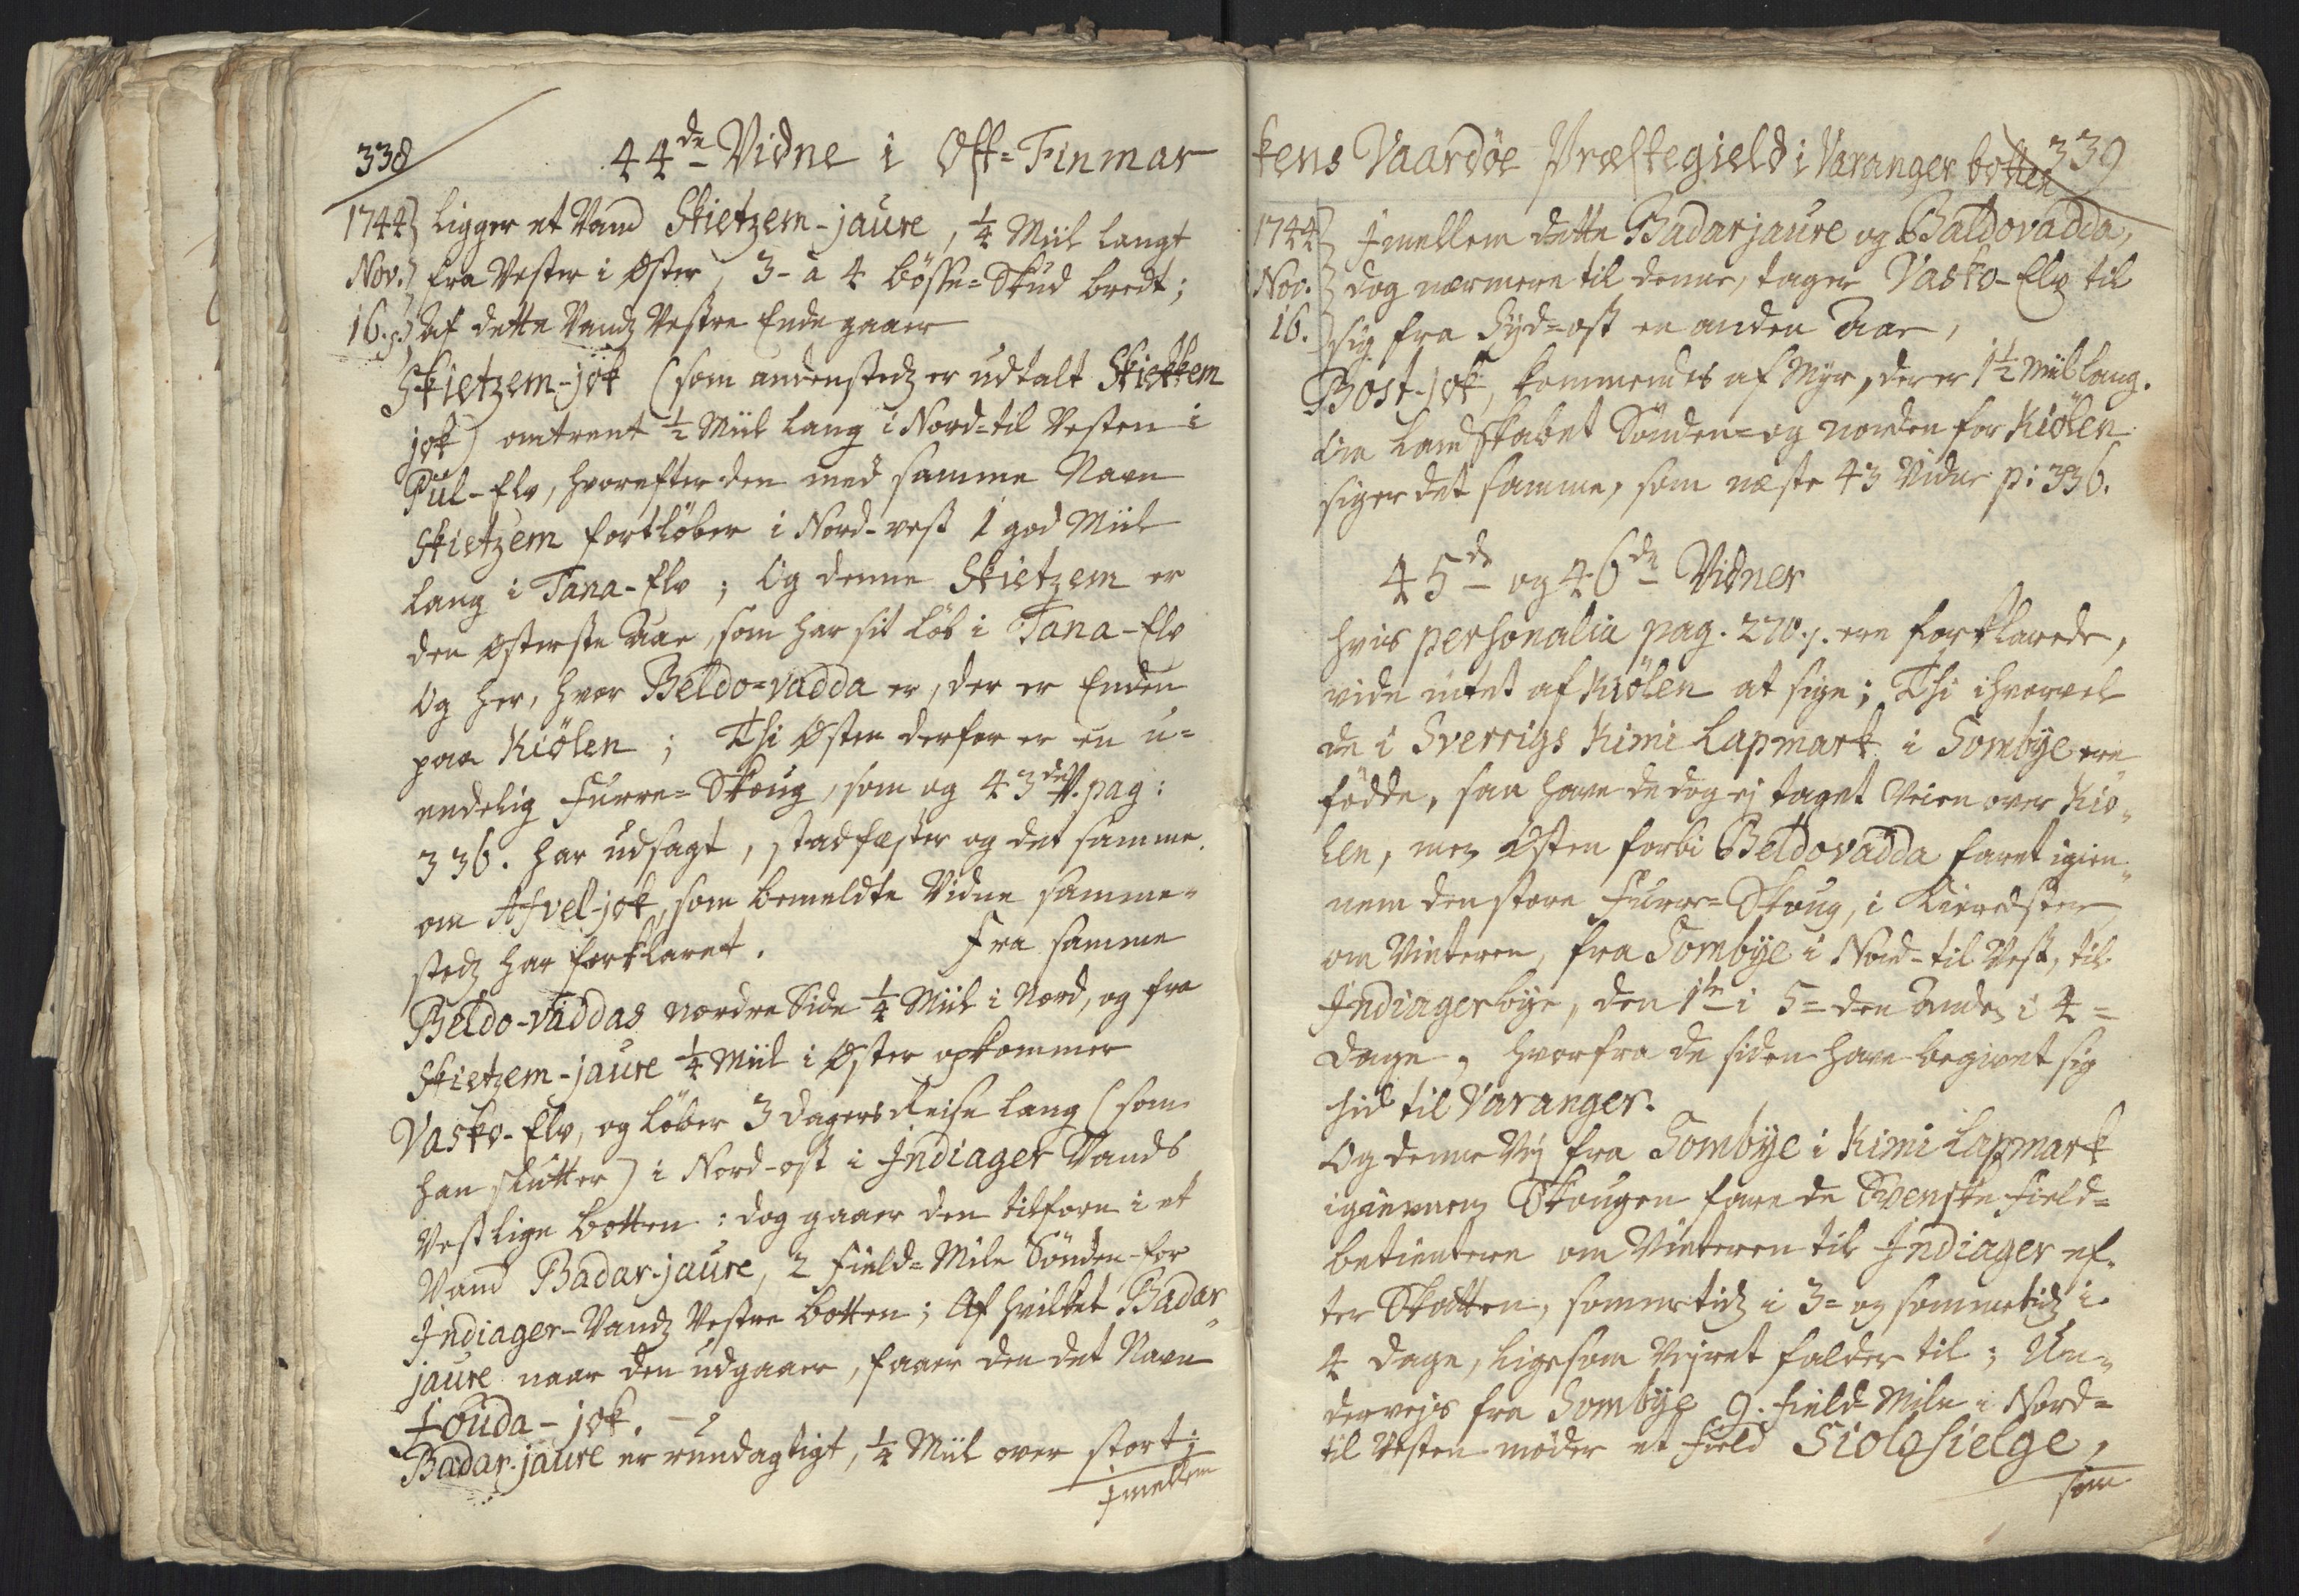 338
44de Vidne i Ost-Finmar
1744 ligger et Vand Skietzem-jaure, 1/4 Miil langt
Nov. fra Vester i Øster, 3- a 4 bösse-Skud bredt;
16. af dette Vandz Vestre Ende gaaer
Skietzem-jok (som andenstedz er udtalt Skiekkem
jok) omtrent 1/2 Miil lang i Nord-til Vesten i
Pul-Elv, hvorefter den med samme Navn
Skietzem fortlöber i Nord-vest 1 god Miil
lang i Tana-Elv; Og denne Skietzem er
den Østerste Aae, som har sit löb i Tana-Elv
Og her, hvor Beldo-vadda er, der er Enden
paa Kiölen; Thi Østen derfor er en u-
endelig Furre-Skoug, som og 43de V. pag:
336. har udsagt, stadfæster og det samme
om Afvel-jok, som bemeldte Vidne samme-
stedz har forklaret. Fra samme
Beldo-vaddas nordre Side 1/4 Miil i Nord, og fra
Skietzem-jaure 1/4 Miil i Øster opkommer
Vasko-Elv, og löber 3 dagers Reise lang (som
han slutter) i Nord-ost i Indiager Vands
Vestlige botten: dog gaaer den tilforn i et
Vand Badar-jaure, 2 Field-Mile Sönden-for
Indiager-Vandz Vestre botten; Af hvilket Badar-
jaure naar den udgaaer, faaer den det Navn
Jouda-jok.
Badar-jaure er rundagtigt, 1/4 Miil over stort;
imellem
kens Vaardöe Præstegield i Varanger botten 339
1744 Imellem dette Badarjaure og Baldovadda,
Nov. dog nærmere til denne, tager Vasko-Elv til
16. sig fra Syd-ost en anden Aae,
Bost-jok, kommendes af Myr, der er 1 1/2 Miil lang.
Om Landskabet Sönden- og norden for Kiölen
siger det samme, som næste 43 Vidne p: 336.
45de og 46de Vidner
hvis personalia pag. 270. ere forklarede,
vide intet af Kiölen at sige; Thi ihvorvel
de i Sverrigs Kimi Lapmark i Sombye ere
födde, saa have de dog ej taget Veien over Kiö-
len, men Østen forbi Beldovadda faret igien-
nem den store Furre-Skoug, i Kieredster
om Vinteren, fra Sombye i Nord-til Vest, til
Indiagerbye, den 1te i 5- den Anden i 4-
Dage, hvorfra de siden have begivet sig
hid til Varanger.
Og denne Vej fra Sombye i Kimi Lapmark
igiennem Skougen fare de Svenske Field-
betientere om Vinteren til Indiager ef-
ter Skatten, sommetidz i 3- og sommetidz i
4 Dage, ligesom Vejret falder til; Un-
dervejs fra Sombye 9. Field-Mile i Nord-
til Vesten möder et Field Siolosielge,
som